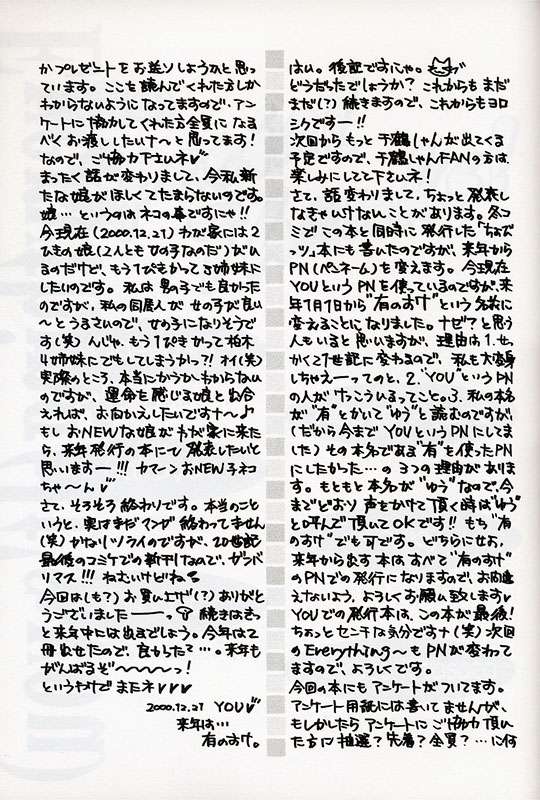 はい。後記ですにゃ。
どうだったでしょうか? これからもまだ
まだ(?)続きますので、これからもヨロ
シクですー!!
次回からもっと千鶴しゃんが出てくる
予定ですので、千鶴しゃんFANの方は
楽しみにしてて下さいネ!
さて、話変わりまして、ちょっと発表し
なきゃいけないことがあります。冬コ
ミでこの本と同時に発行した「ちょび
っツ」本にも書いたのですが、来年から
PN(ペンネーム)を変えます。今現在
YOUというPNを使っているのですが、来
年1月1日から"有のすけ"という名前に
変えることになりました。ナゼ?と思う
人もいると思いますが、理由は1.せっ
かく21世紀に変わるので、私も大変身
しちゃえーってのと、2."YOU"というPN
の人がけっこういるってこと。3.私の本名
が"有"とかいて"ゆう"と読むのですが、
(だから今までYOUというPNにしてま
した)その本名である"有"を使ったPN
にしたかった…の3つの理由がありま
す。もともと本名が"ゆう"なので、今
までどおり声をかけて頂く時は"ゆう"
と呼んで頂いてOKです!! もち"有
のすけ"でも可です。どちらにせよ、
来年から出す本はすべて"有のすけ"
のPNでの発行になりますので、お間違
えないよう、よろしくお願い致します♥
YOUでの発行本は、この本が最後!
ちょっとセンチな気分ですナ(笑)次回
のEverything〜もPNが変わって
ますので、よろしくです。
今回の本にもアンケートがついてます。
アンケート用紙には書いてませんが、
もしかしたらアンケートにご協力頂い
た方に抽選?先着?全員?…に何
かプレゼントをお送りしようかと思っ
ています。ここを読んでくれた方しか
わからないようになってますので、アン
ケートに協力してくれた方全員になる
べくお渡ししたいナ〜と思ってます!
なので、ご協力下さいネ♥
まったく話が変わりまして、今私新
たな娘がほしくてたまらないのです。
娘…というのはネコの事ですにゃ!!
今現在(2000.12.21)わが家には2
ひきの娘(2人とも女の子なのだ)がい
るのだけど、もう1ぴきかって3姉妹に
したいのです。私は男の子でも良かった
のですが、私の同居人が女の子が良い
〜とうるさいので、女の子になりそうで
す(笑)んじゃ、もう1ぴきかって柏木
4姉妹にでもしてしまうかっ?!オイ(笑)
実際のところ、本当にかうかわからない
のですが、運命を感じる娘と出合
えれば、お向かえしたいですナ〜♪
もしおNEWな娘がわが家に来た
ら、来年発行の本にて発表したいと
思いますー!!! カマーンおNEW子ネコ
ちゃ〜ん♥
さて、そろそろ終わりです。本当のこと
いうと、実はまだマンガ終わってません
(笑)かなりツライのですが、20世紀
最後のコミケでの新刊なので、ガンバ
リマス!!! ねむいけどね
今回は(も?)お買い上げ(?)ありがと
うございました──っ 続きはきっ
と来年中には出るでしょう。今年は2
冊出せたので、良かった?…。来年も
がんばるぞ〜〜〜〜っ!
というわけでまたネ♥♥♥
2000.12.21 YOU♥
来年は…
有のすけ。